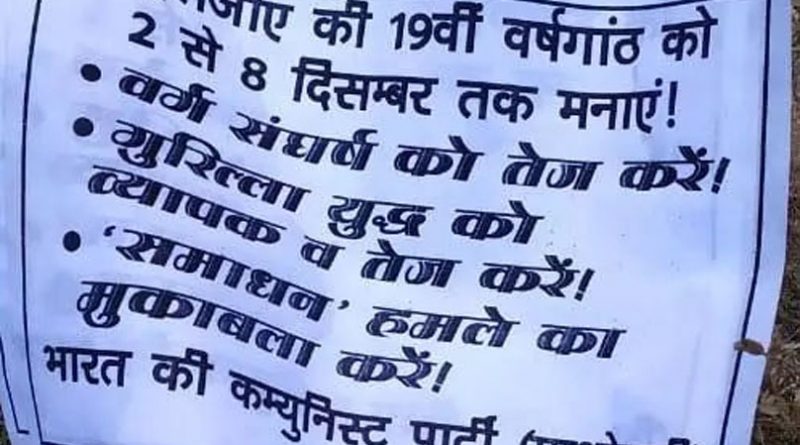 की 19वीं वर्षगांठ को
2 से 8 दिसम्बर तक मनाएं!
• वर्ग संघर्ष को तेज करें!
• गुरिल्ला युद्ध को
व्यापक व तेज करें!
• ‘समाधन’ हमले का
मुकाबला करें!
भारत की कम्युनिस्ट पार्टी